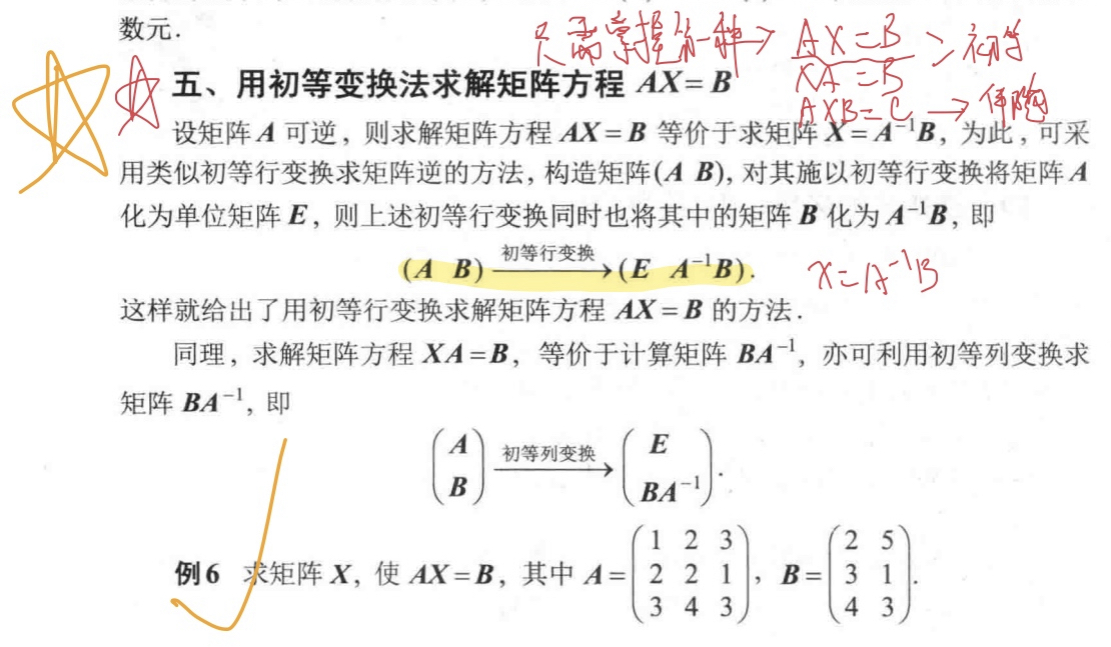 数元.
只需掌握第一种→ AX=B
XA=B > 初等
AXB=C → 伴随
五、用初等变换法求解矩阵方程 AX=B
设矩阵 A 可逆，则求解矩阵方程 AX=B 等价于求矩阵 X=A⁻¹B，为此，可采
用类似初等行变换求矩阵逆的方法，构造矩阵(A B)，对其施以初等行变换将矩阵 A
化为单位矩阵 E，则上述初等行变换同时也将其中的矩阵 B 化为 A⁻¹B，即
(A B) 初等行变换→ (E A⁻¹B).
X=A⁻¹B
这样就给出了用初等行变换求解矩阵方程 AX=B 的方法.
同理，求解矩阵方程 XA=B，等价于计算矩阵 BA⁻¹，亦可利用初等列变换求
矩阵 BA⁻¹，即
(A B) 初等列变换→ (E BA⁻¹).
例6 求矩阵 X，使 AX=B，其中 A=(1 2 3
2 2 1
3 4 3)，B=(2 5
3 1
4 3).